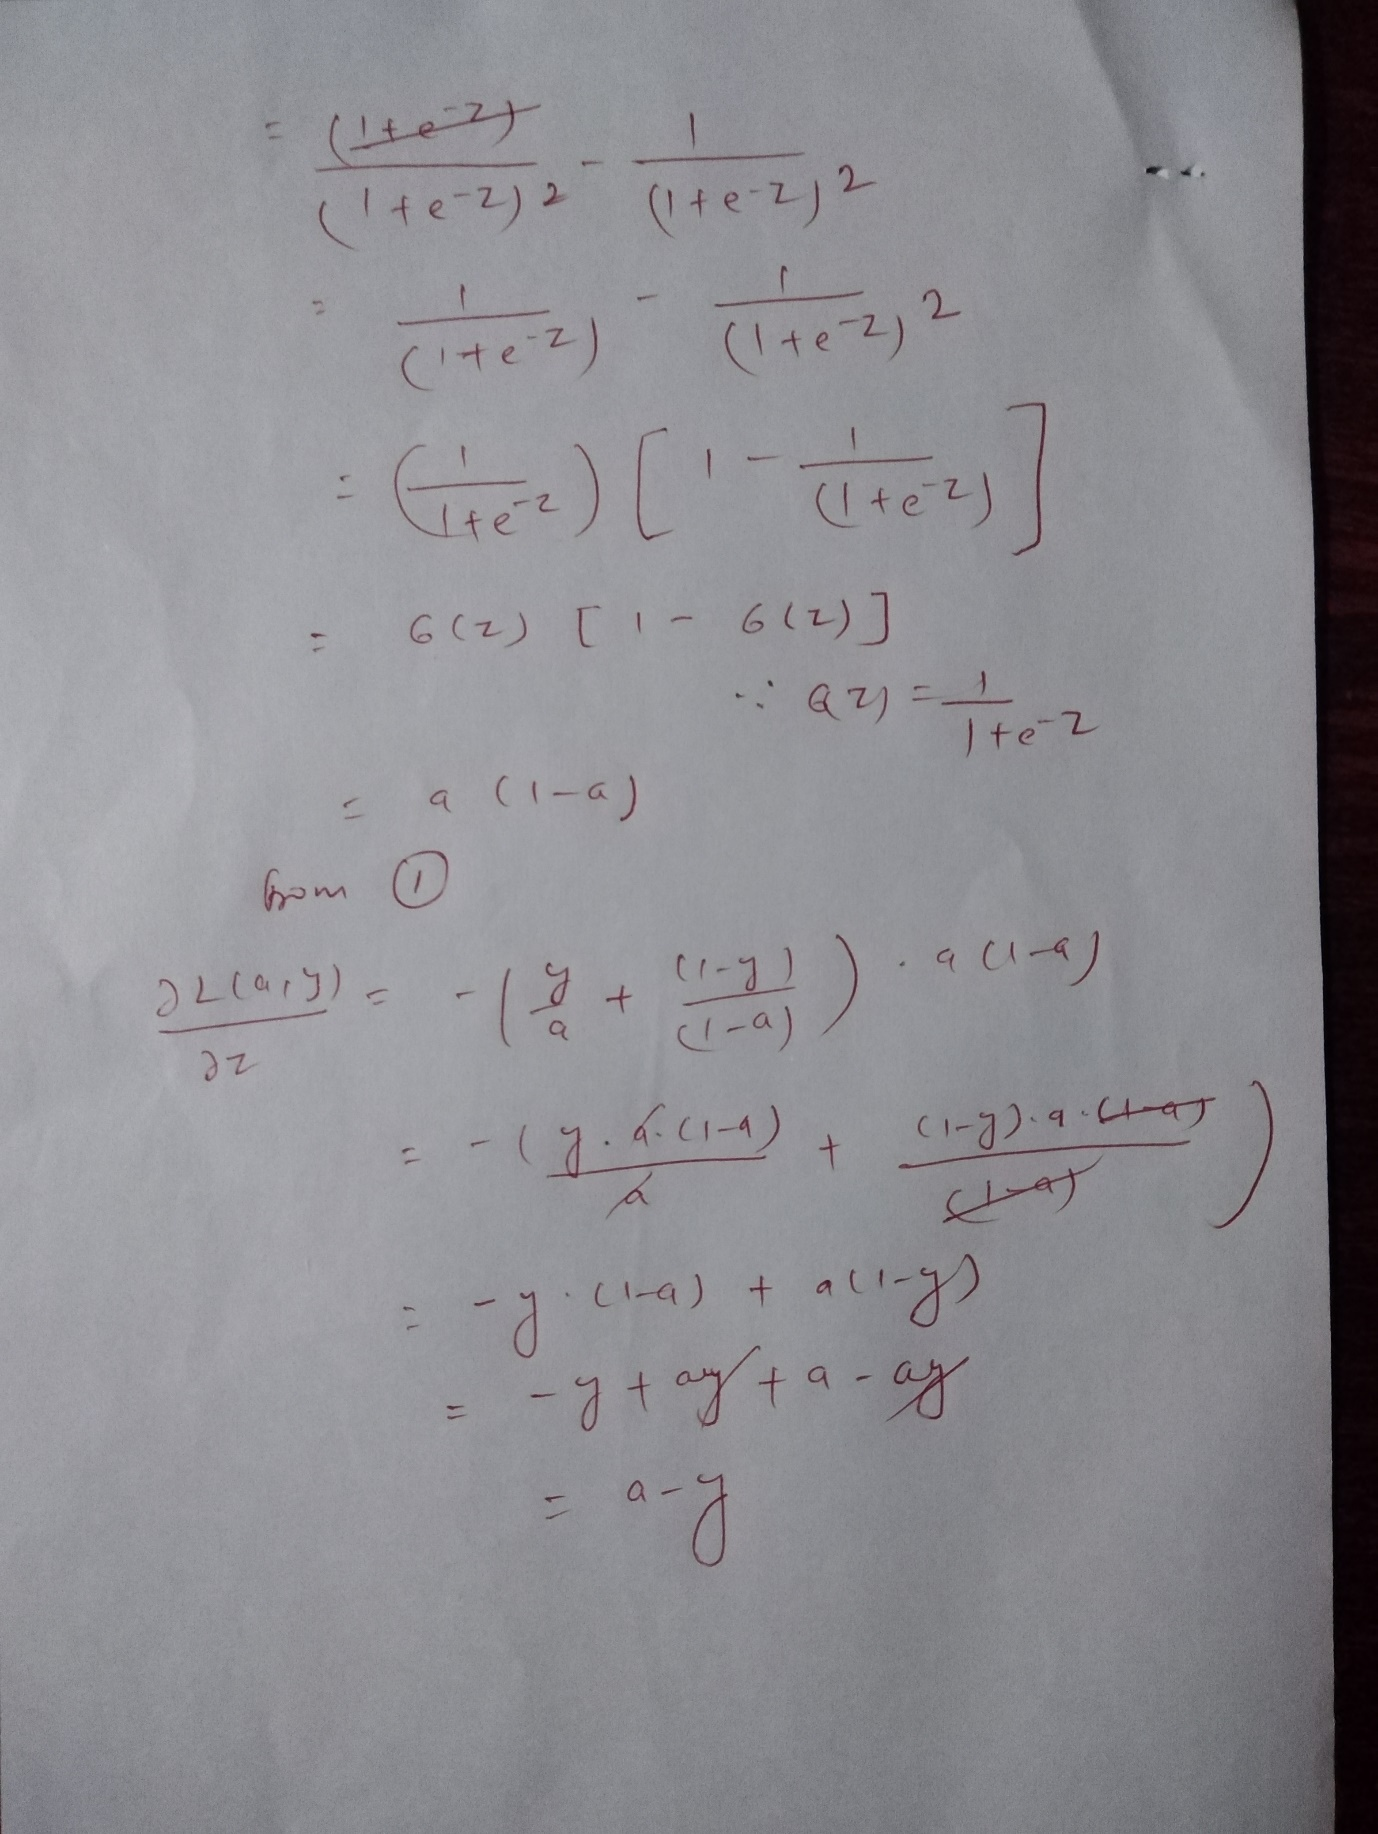 = (1+e^-z) / (1+e^-z)^2 - 1 / (1+e^-z)^2
= 1 / (1+e^-z) - 1 / (1+e^-z)^2
= (1 / 1+e^-z) [1 - 1 / (1+e^-z)]
= σ(z) [1 - σ(z)]
∵ σ(z) = 1 / 1+e^-z
= a (1-a)
from ①
∂L(a,y) / ∂z = -(y/a + (1-y)/(1-a)) . a(1-a)
= -(y.a.(1-a) / a + (1-y).a.(1-a) / (1-a))
= -y.(1-a) + a(1-y)
= -y + ay + a - ay
= a-y